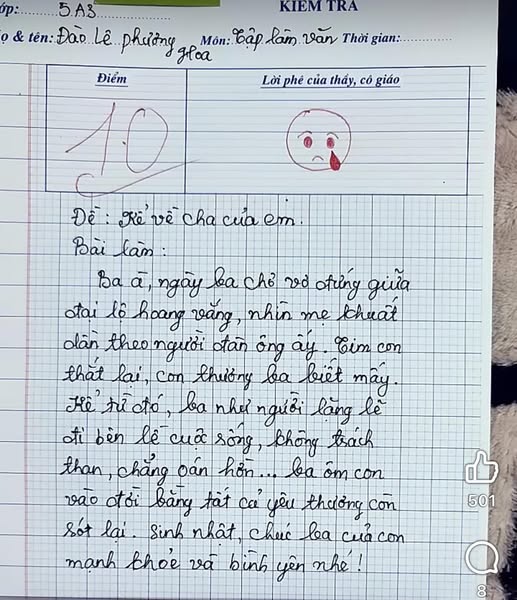 ớp: 5A3 KIỂM TRA
ọ & tên: Đào Lê Phương Hoa Môn: Tập làm văn Thời gian:
Điểm Lời phê của thầy, cô giáo
10
Đề: Kể về cha của em.
Bài làm:
Ba à, ngày ba chở vợ đứng giữa
đại lộ hoang vắng, nhìn mẹ khuất
dần theo người đàn ông ấy. Tim con
thắt lại, con thương ba biết mấy.
Kể từ đó, ba như người lặng lẽ
đi bên lề cuộc sống, không trách
than, chẳng oán hờn... ba ôm con
vào đời bằng tất cả yêu thương còn
sót lại. Sinh nhật, chúc ba của con
mạnh khoẻ và bình yên nhé!
501
8